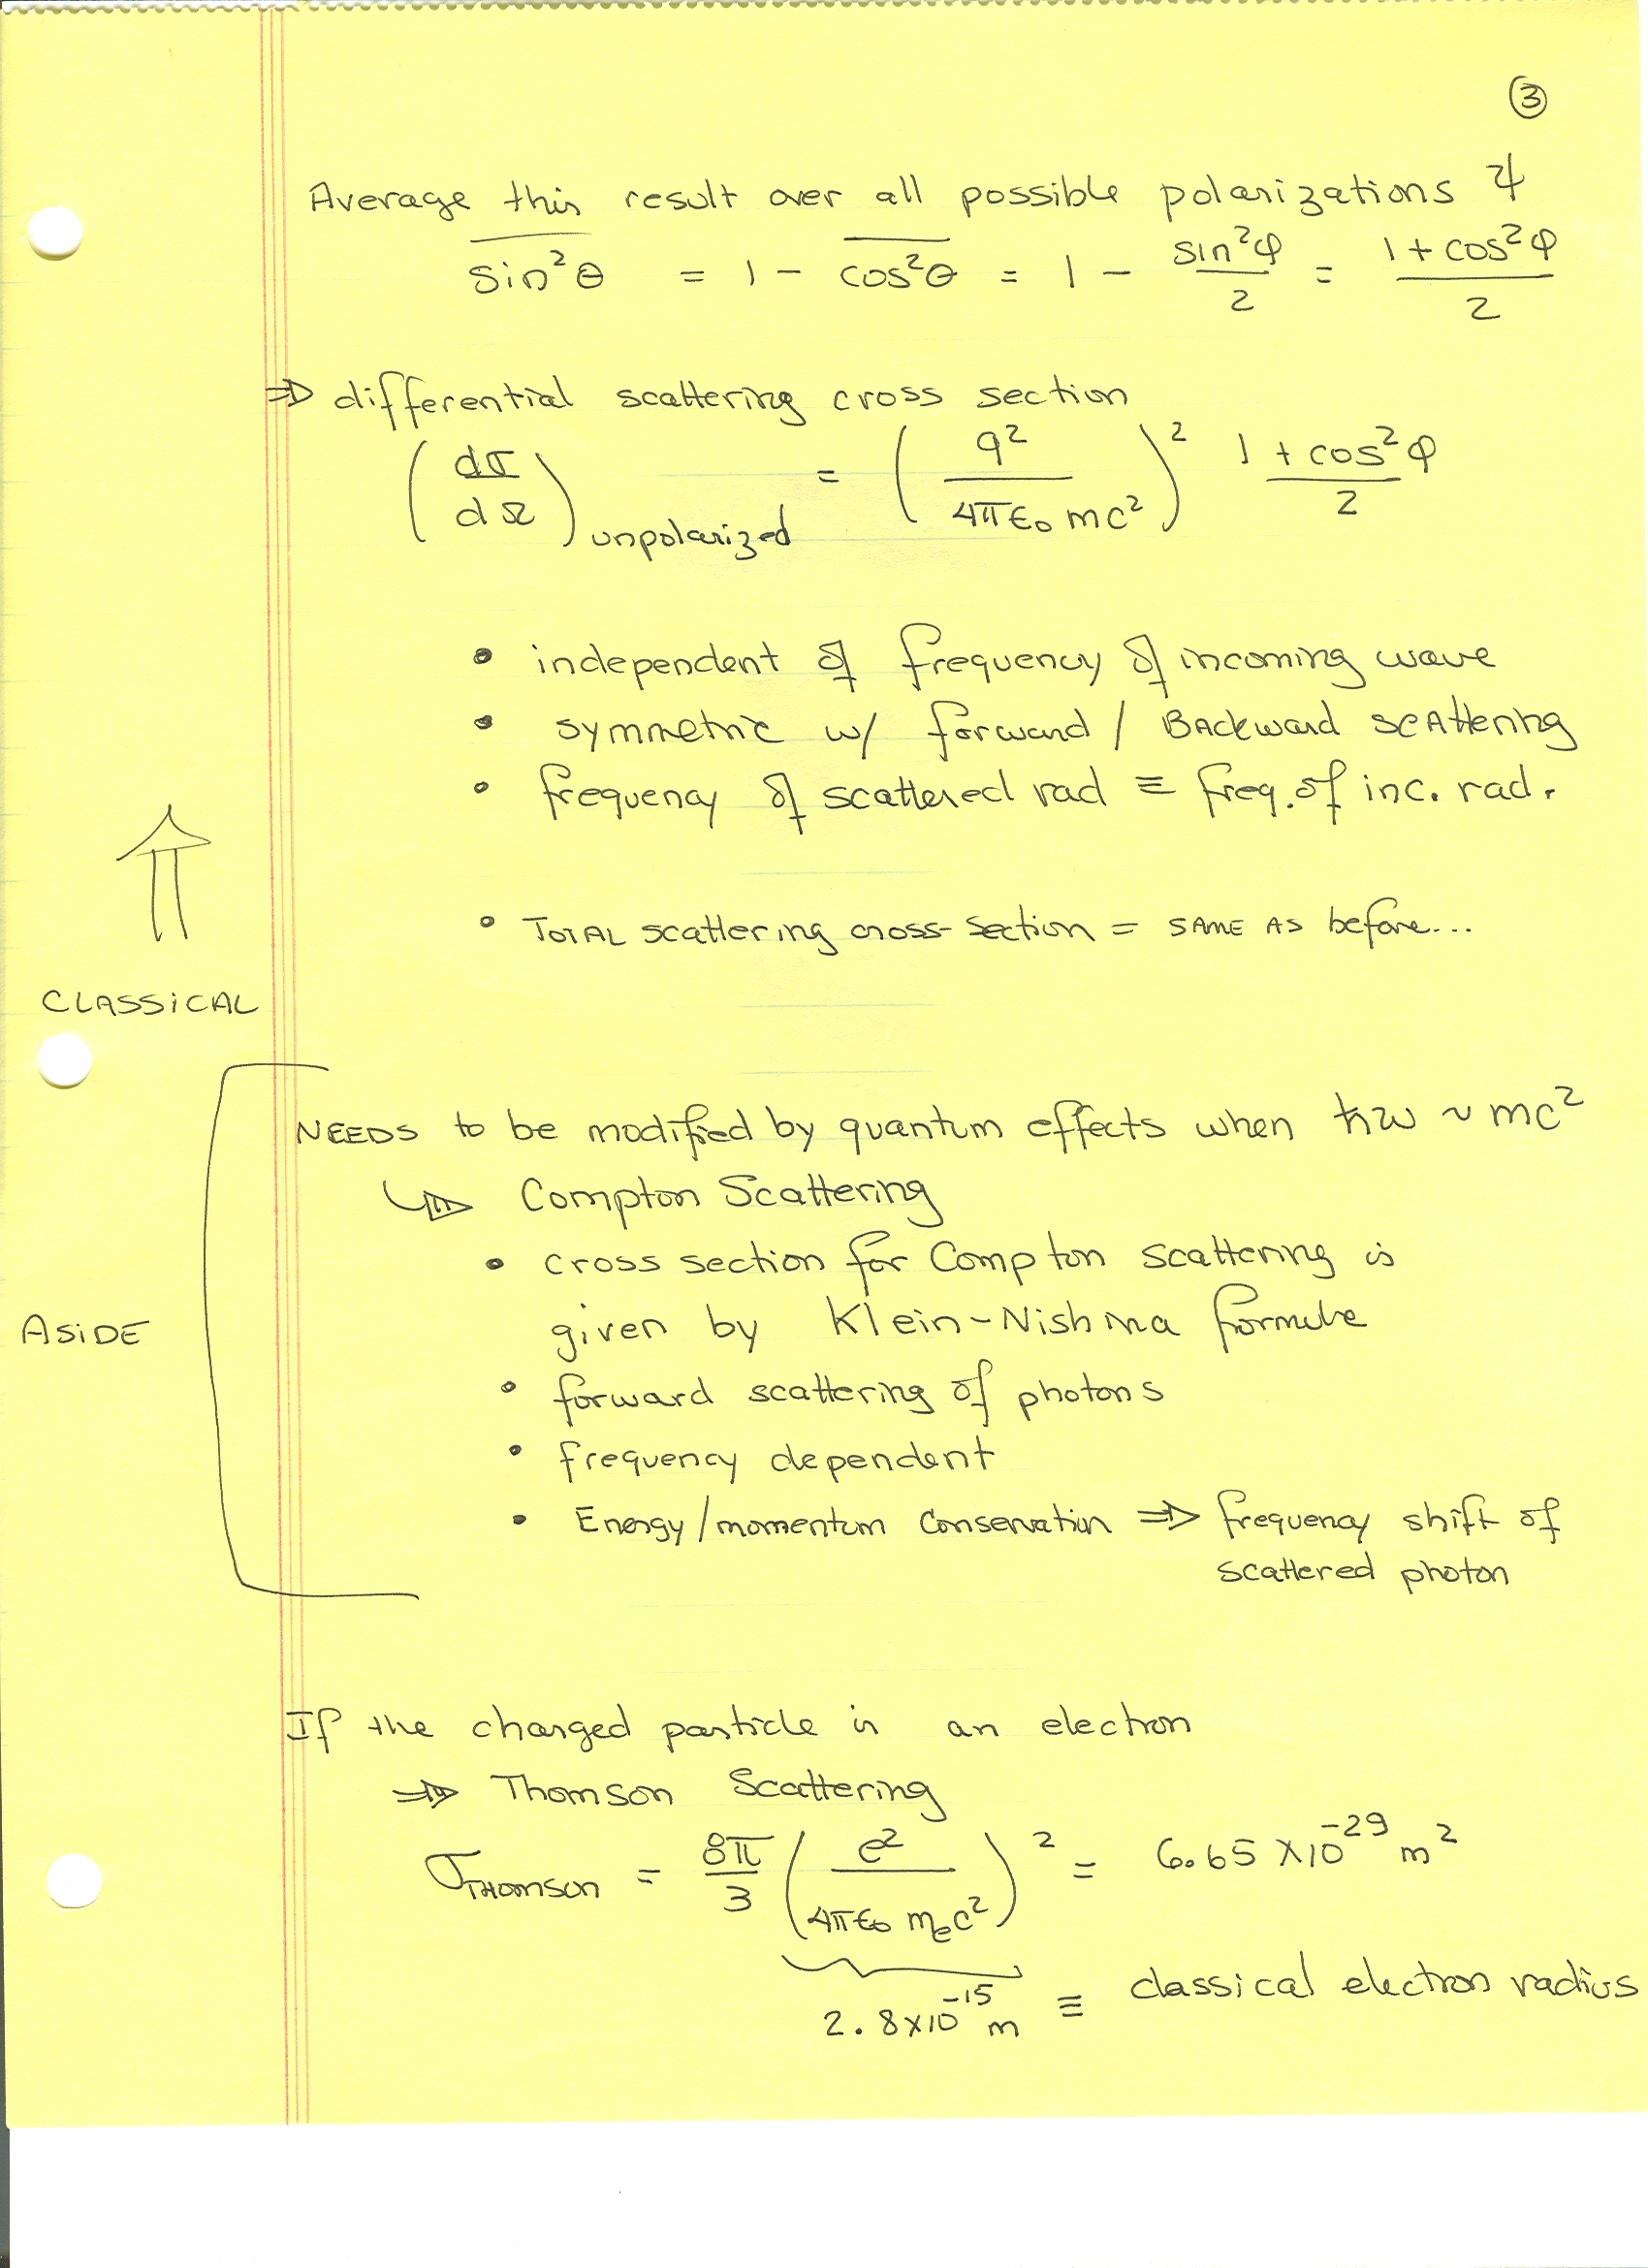 ③
Average this result over all possible polarizations ψ
$\overline{\sin^2\theta} = 1 - \overline{\cos^2\theta} = 1 - \frac{\sin^2\varphi}{2} = \frac{1+\cos^2\varphi}{2}$
⇒ differential scattering cross section
$\left(\frac{d\sigma}{d\Omega}\right)_{unpolarized} = \left(\frac{q^2}{4\pi\epsilon_0 mc^2}\right)^2 \frac{1+\cos^2\varphi}{2}$
• independent of frequency of incoming wave
• symmetric w/ forward / BACkward scAttering
• frequency of scattered rad ≡ freq. of inc. rad.
• TOTAL scattering cross-section = SAME AS before...
⇑
CLASSiCAL
NEEDS to be modified by quantum effects when ħω ~ mc²
↳ Compton Scattering
• cross section for Compton scattering is
given by Klein-Nishina formula
ASiDE
• forward scattering of photons
• frequency dependent
• Energy/momentum Conservation ⇒ frequency shift of
scattered photon
If the charged particle is an electron
⇒ Thomson Scattering
$\sigma_{THOMSON} = \frac{8\pi}{3}\left(\frac{e^2}{4\pi\epsilon_0 m_e c^2}\right)^2 = 6.65 \times 10^{-29} m^2$
2.8×10⁻¹⁵ m ≡ classical electron radius